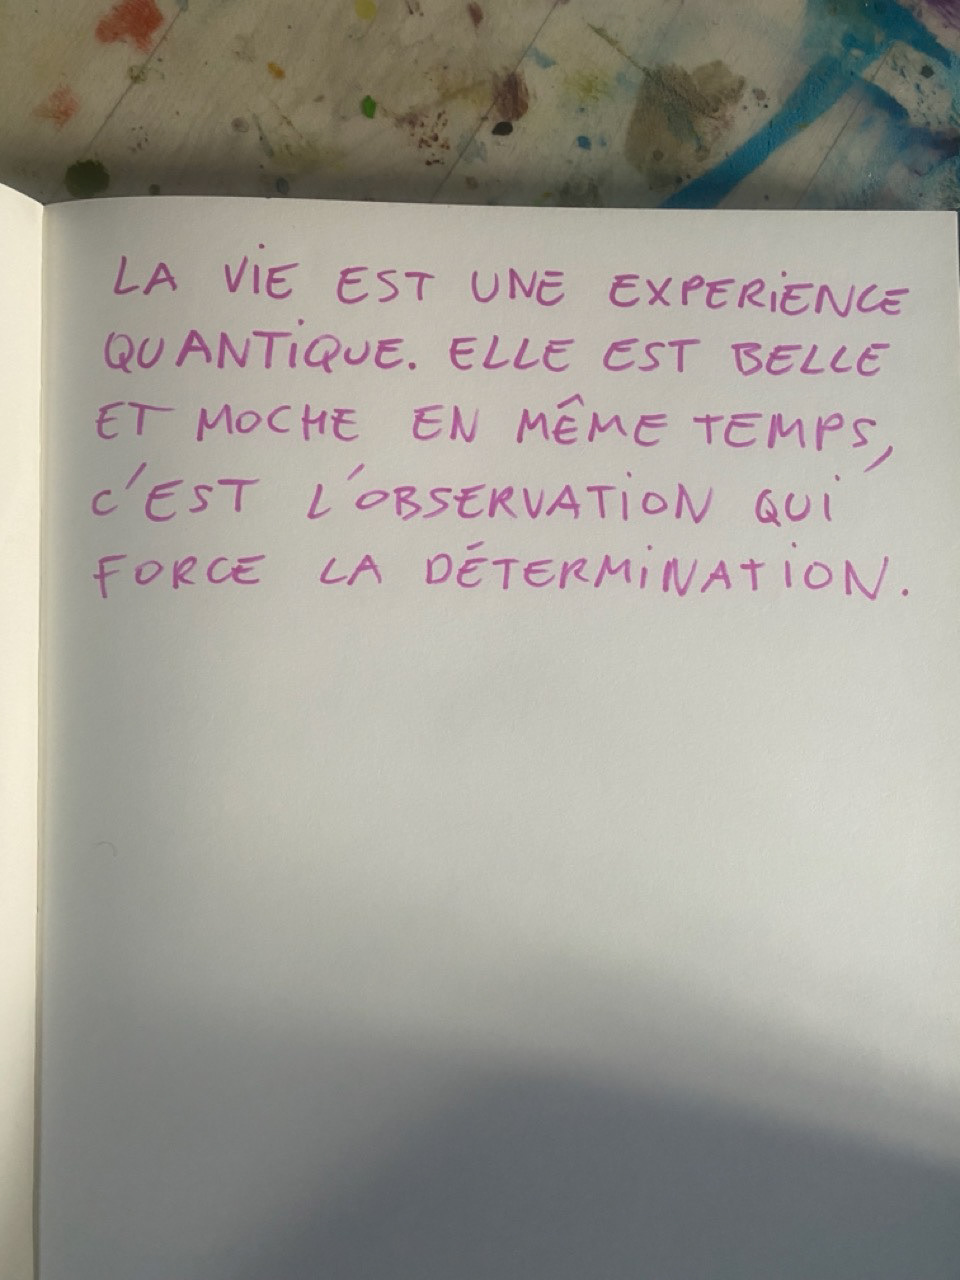 LA ViE EST UNE EXPERiENCE
QUANTiQUE. ELLE EST BELLE
ET MOCHE EN MÊME TEMPS,
C'EST L'OBSERVATiON QUi
FORCE LA DÉTERMiNATiON.